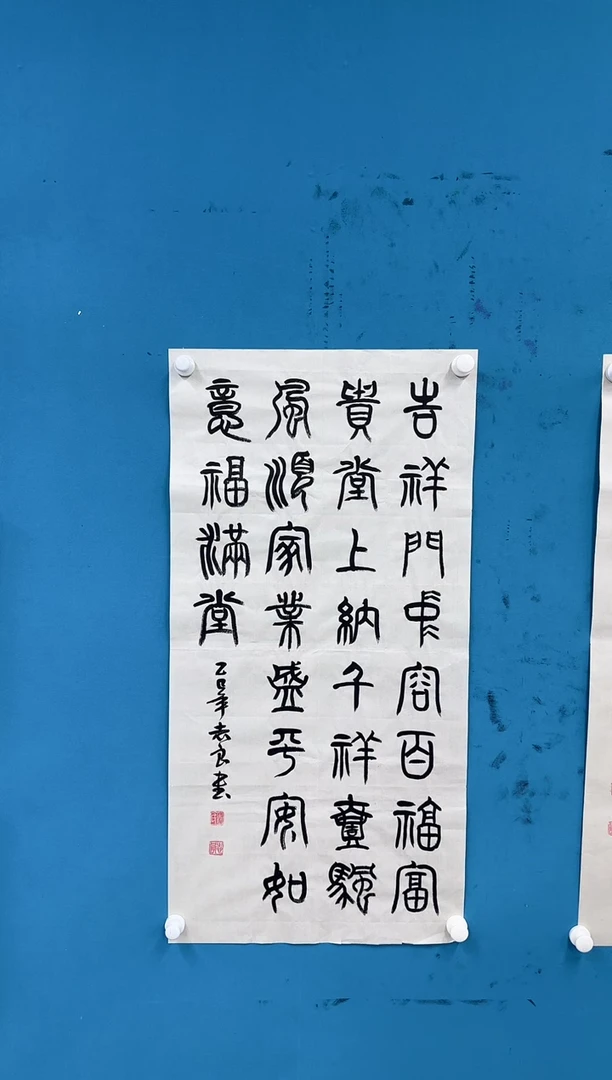 吉祥門中容百福富
貴堂上納千祥壹颿
風順家業盛平安如
意福滿堂
乙巳年志良書